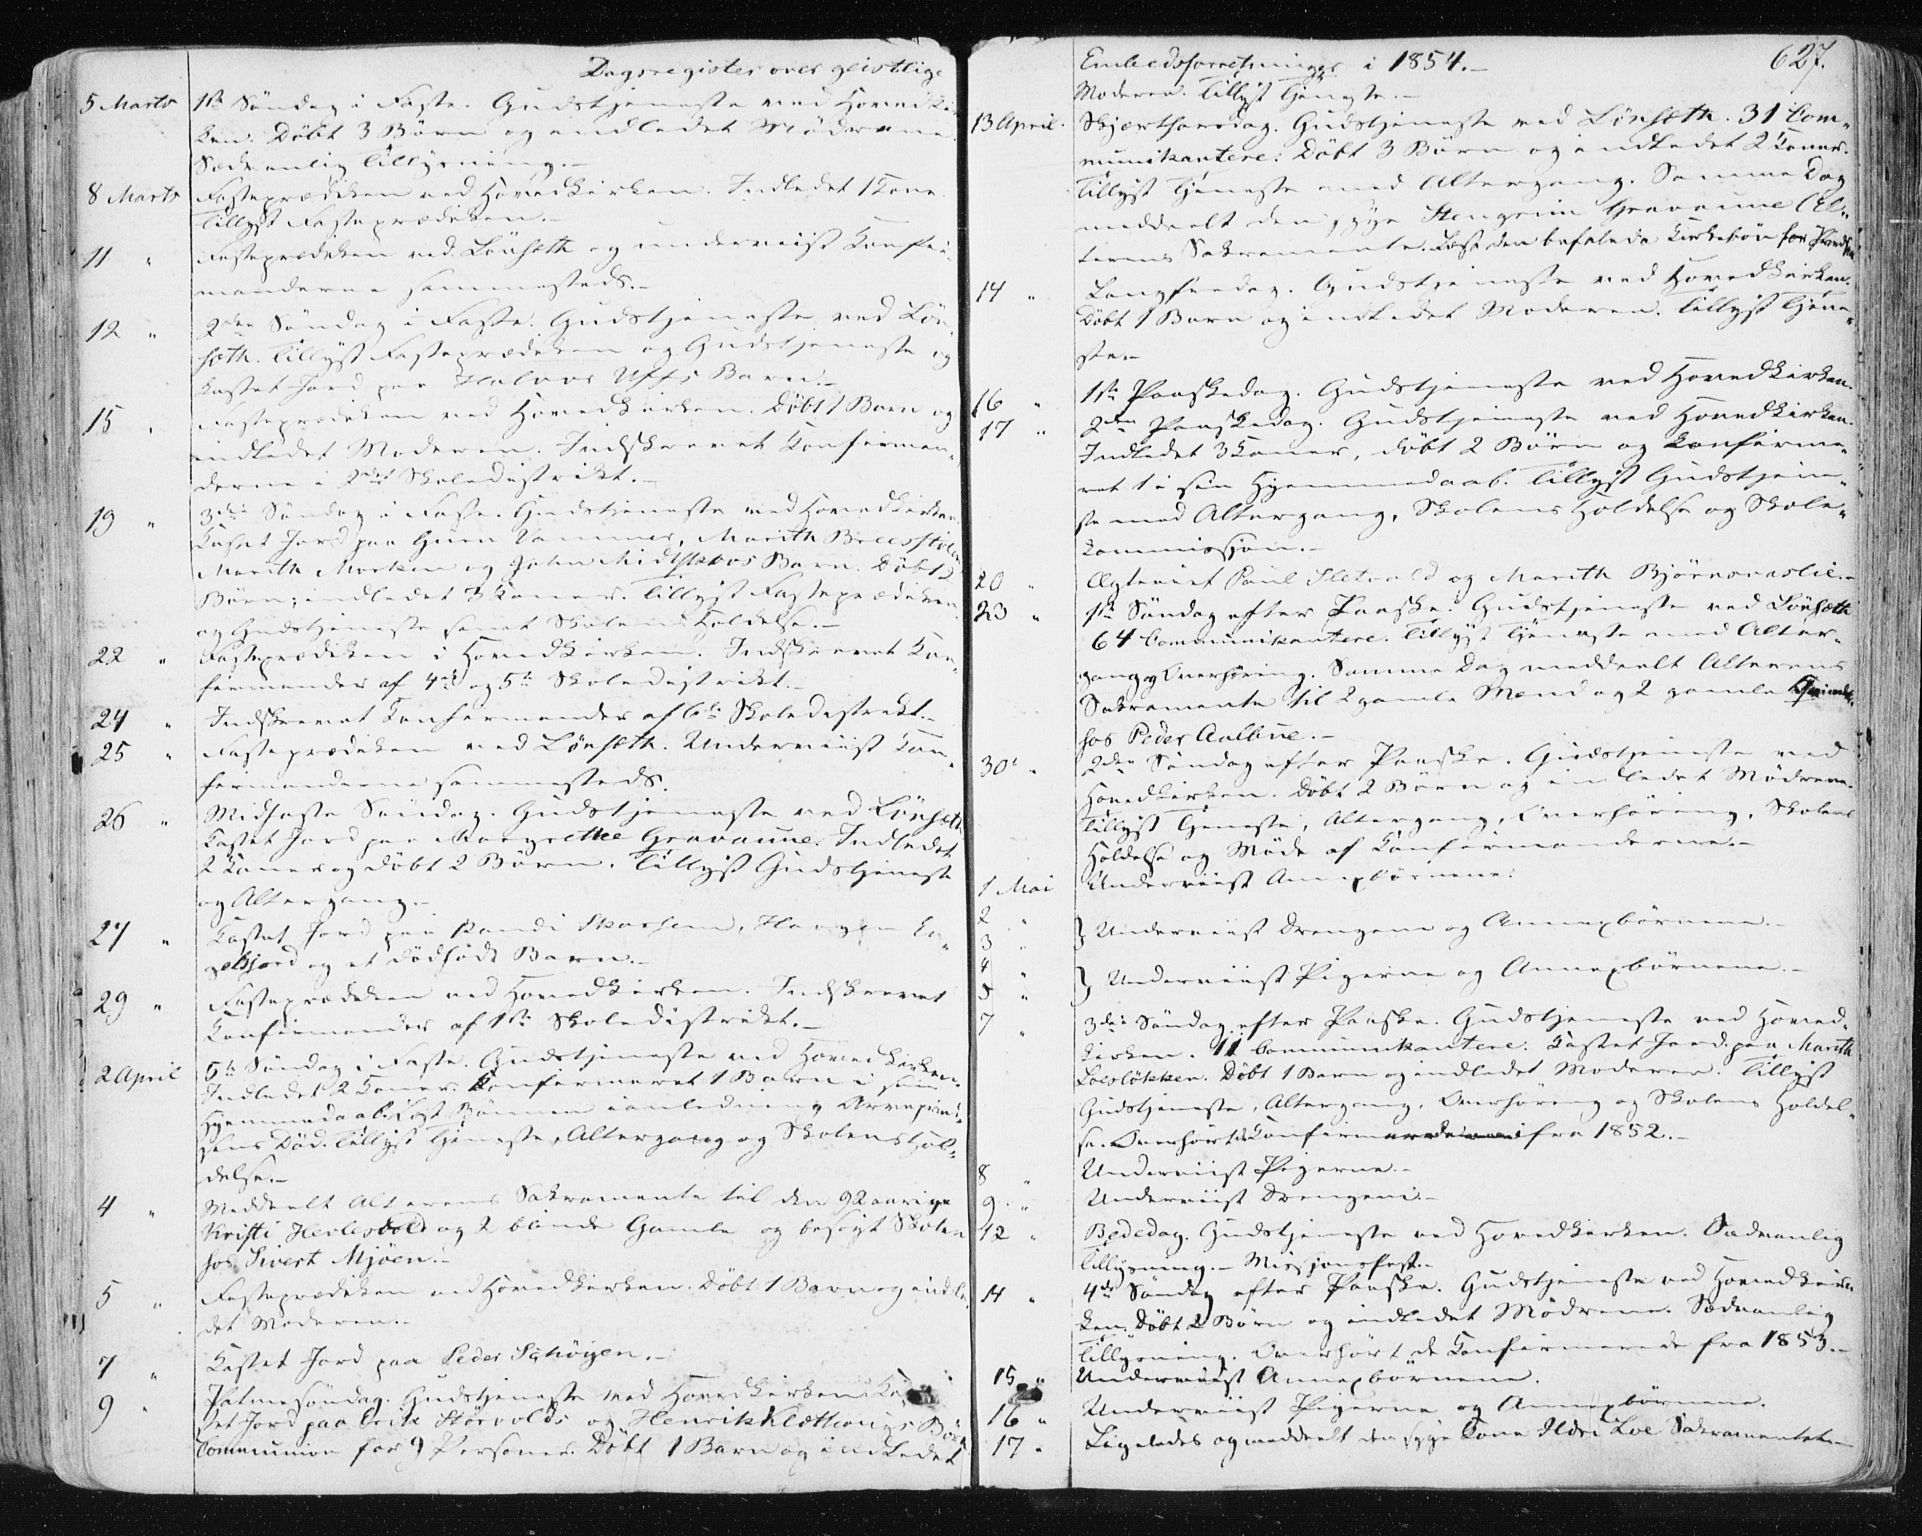 Dagsregister over geistlige
5 Marts 1ste Söndag i Faste. Gudstjeneste ved Hovedkir-
ken. Döbt 3 Börn og indledet Mödrene.
Sædvanlig Tillysning.-
8 Marts Fasteprædiken ved Hovedkirken. Indledet 1 Kone.
Tillyst Fasteprædiken.-
11 " Fasteprædiken ved Lönseth og underviist Konfir-
manderne sammesteds.-
12 " 2den Söndag i Faste. Gudstjeneste ved Lön-
seth. Tillyst Fasteprædiken og Gudstjeneste og
kastet Jord paa Halvor Uffs Barn.-
15 " Fasteprædiken ved Hovedkirken. Döbt 1 Barn og
indledet Moderen. Indskrevet Konfirman-
derne i 2det Skoledistrikt.-
19 " 3die Söndag i Faste. Gudstjeneste ved Hovedkirken.
Kastet Jord paa Guru Vammer, Marith
Marith Morken og John Barn. Döbt 2
Börn; indledet 3 Koner. Tillyst Fasteprædiken
og Gudstjeneste samt Skolens Holdelse.-
22 " Fasteprædiken i Hovedkirken. Indskrevet Kon-
firmander af 4de og 5te Skoledistrikt.-
24 " Indskrevet Konfirmander af 6te Skoledistrikt.-
25 " Fasteprædiken ved Lönseth. Underviist Kon-
firmanderne sammesteds.
26 " Midfaste Söndag. Gudstjeneste ved Lönseth
Kastet Jord paa Margrethe Gravaune. Indledet
2 Koner og döbt 2 Börn. Tillyst Gudstjeneste
og Altergang.-
27 " Kastet Jord paa Randi Skarsem,
og et dödfödt Barn.-
29 " Fasteprædiken ved Hovedkirken. Indskrevet
Konfirmander af 1ste Skoledistrikt.-
2 April 5te Söndag i Faste. Gudstjeneste ved Hovedkirken.
Indledet 2 Koner. Konfirmeret 1 Barn i sin
Hjemmedaab. Læst Bönnen i anledning Arveprind-
sens Död. Tillyst Tjeneste, Altergang og Skolens Hol-
delse.-
4 " Meddeelt Alterens Sakramente til den 92 aarige
Kristi Herlesvold og 2 blinde Gamle og besögt Skolen
hos Sivert Mjöen.-
5 " Fasteprædiken ved Hovedkirken. Döbt 1 Barn og indle-
det Moderen.-
7 " Kastet Jord paa Peder Schöyen.-
9 " Palmesöndag. Gudstjeneste ved Hovedkirken.
tet Jord paa Erik Störvolds og Henrik Klætthougs
Communion for 9 Personer. Döbt 1 Barn og indledet
Embedsforretninger i 1854.- 627.
Moderen. Tillyst Tjeneste.-
13 April. Skjærthorsdag. Gudstjeneste ved Lönseth. 31 Com-
munikantere. Döbt 3 Börn og indledet 2 Koner.
Tillyst Tjeneste med Altergang. Samme Dag
meddeelt den syge Stengrim Gravaune Al-
terens Sakramente. Læst den befalede Kirkebön for
14 " Langfredag. Gudstjeneste ved Hovedkirken.
Döbt 1 Barn og indledet Moderen. Tillyst Tjene-
ste.-
16 " 1ste Paaskedag. Gudstjeneste ved Hovedkirken.
17 " 2den Paaskedag. Gudstjeneste ved Hovedkirken.
Indledet 3 Koner, döbt 2 Börn og konfirme-
ret 1 i sin Hjemmedaab. Tillyst Gudstjene-
ste med Altergang, Skolens Holdelse og Skole-
kommission.-
20 " Ægteviet Paul Sletvold og Marith Björnsenslie.-
23 " 1ste Söndag efter Paaske. Gudstjeneste ved Lönseth
64 Communikantere. Tillyst Tjeneste med Alter-
gang og Overhöring. Samme Dag meddeelt Alterens
Sakramente til 2 gamle Mænd og 2 gamle
hos Peder Aalbue.-
30 " 2den Söndag efter Paaske. Gudstjeneste ved
Hovedkirken. Döbt 2 Börn og indledet Mödrene.
Tillyst Tjeneste, Altergang, Overhöring, Skolens
Holdelse og Möde af Konfirmanderne.-
1 Mai Underviist Annexbörnene.
2 "
3 " } Underviist Drengene og Annexbörnene.-
4 "
5 " } Underviist Pigerne og Annexbörnene.-
7 " 3die Söndag efter Paaske. Gudstjeneste ved Hoved-
kirken. 11 Communikantere. Kastet Jord paa Marith
Loeslökken. Döbt 1 Barn og indledet Moderen. Tillyst
Gudstjeneste, Altergang, Overhöring og Skolens Holdel-
se. Overhört fra 1852.-
8 " Underviist Pigerne.-
9 " Underviist Drengene.-
12 " Bededag. Gudstjeneste ved Hovedkirken. Sædvanlig
Tillysning.- Missionsfest.-
14 " 4de Söndag efter Paaske. Gudstjeneste ved Hovedkir-
ken. Döbt 2 Börn og indledet Mödrene. Sædvanlig
Tillysning. Overhört de Konfirmerede fra 1853.-
15 " Underviist Annexbörnene.
16 " Underviist Pigerne og Annexbörnene.
17 " Ligeledes og meddeelt den syge Kone Ildri Loe Sakramentet.-